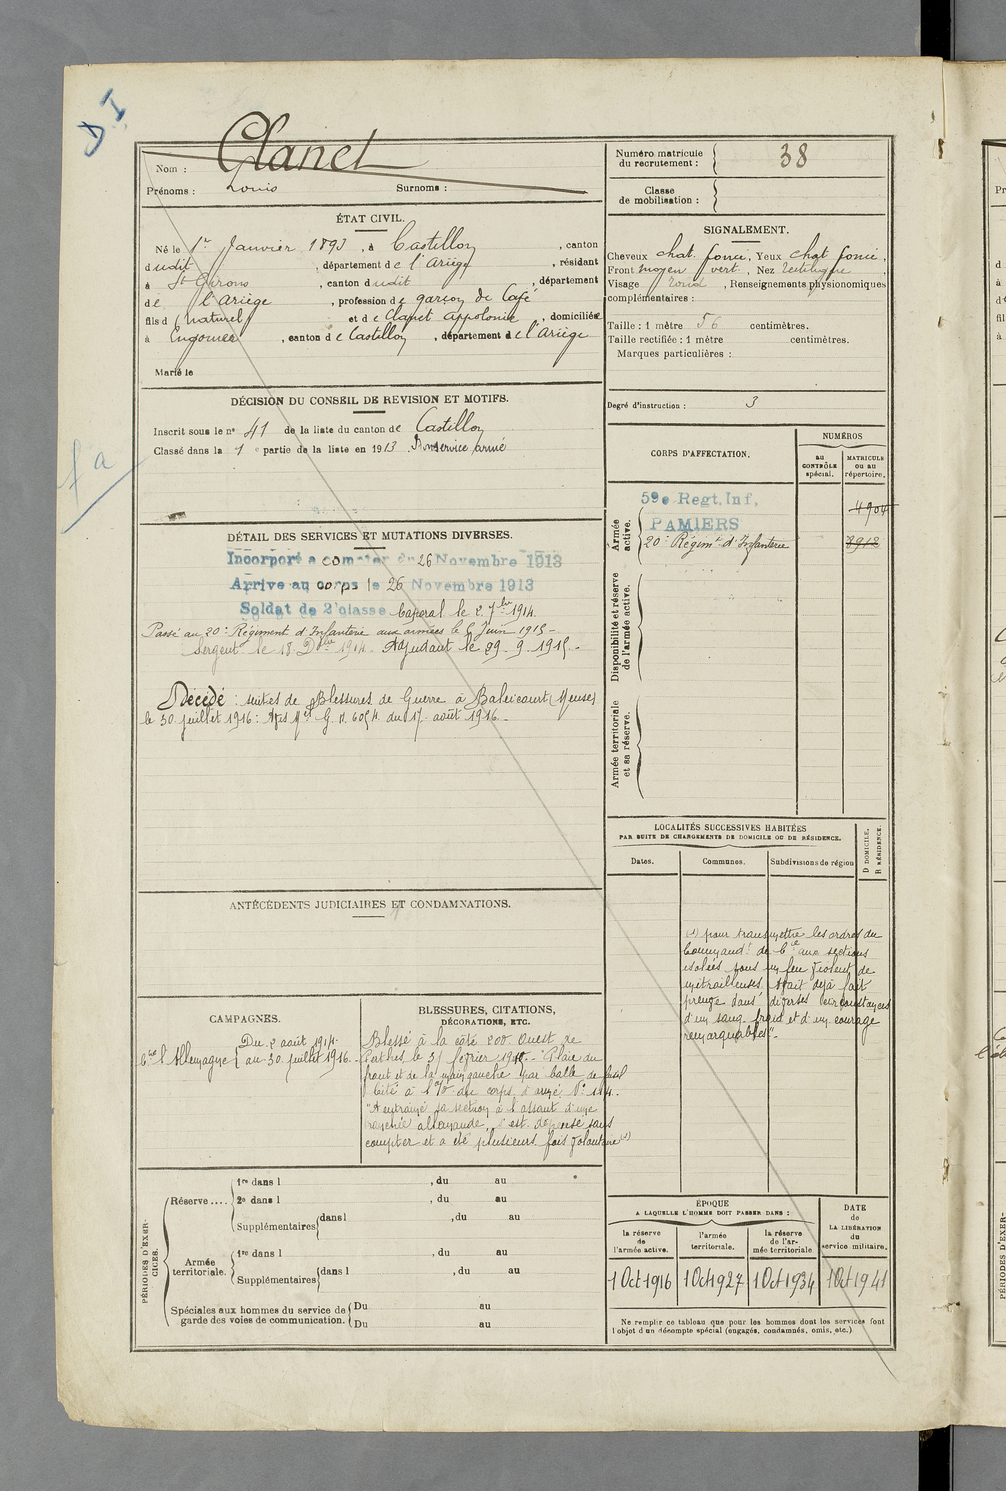 D I
Nom : Clanet
Prénoms : Louis Surnoms :
Numéro matricule du recrutement : 38
Classe de mobilisation :
ÉTAT CIVIL.
Né le 1er Janvier 1893, à Castillon, canton
dudit, département de l'Ariège, résidant
à St Girons, canton dudit, département
de l'Ariège, profession de garçon de Café
fils d naturel et de Clanet Appolonie, domiciliée
à Engomer, canton de Castillon, département de l'Ariège
Marié le
SIGNALEMENT.
Cheveux chat. foncé, Yeux chat foncé,
Front moyen vert., Nez rectiligne,
Visage rond, Renseignements physionomiques
complémentaires :
Taille : 1 mètre 56 centimètres.
Taille rectifiée : 1 mètre centimètres.
Marques particulières :
Degré d'instruction : 3
DÉCISION DU CONSEIL DE REVISION ET MOTIFS.
Inscrit sous le n° 41 de la liste du canton de Castillon
Classé dans la 1e partie de la liste en 1913. Bon service armé
DÉTAIL DES SERVICES ET MUTATIONS DIVERSES.
Incorporé a compter du 26 Novembre 1913
Arrive au corps le 26 Novembre 1913
Soldat de 2e classe Caporal le 2 7bre 1914.
Passé au 20e Régiment d'Infanterie aux armées le 5 Juin 1915-
Sergent le 18 Dbre 1914. Adjudant le 29. 9. 1915.-
Décédé : suites de Blessures de Guerre à Baleicourt (Meuse)
le 30 juillet 1916: Avis Mel G. N. du 17. août 1916.-
CORPS D'AFFECTATION.
NUMÉROS
AU CONTRÔLE spécial.
MATRICULE ou au répertoire.
Armée active.
59e Regt. Inf, 4904
PAMIERS
20e Régimt d'Infanterie 8912
Disponibilité et réserve de l'armée active.
Armée territoriale et sa réserve.
LOCALITÉS SUCCESSIVES HABITÉES
PAR SUITE DE CHANGEMENTS DE DOMICILE OU DE RÉSIDENCE.
Dates. Communes. Subdivisions de région D DOMICILE. R RÉSIDENCE.
(1) pour transmettre les ordres du
Commandt de Cie aux sections
isolées sous un feu violent de
mitrailleuses. Avait déjà fait
preuve dans diverses circonstances
d'un sang froid et d'un courage
remarquables".
ANTÉCÉDENTS JUDICIAIRES ET CONDAMNATIONS.
CAMPAGNES.
Ctre l'Allemagne { Du 2 août 1914.
au 30 juillet 1916.
BLESSURES, CITATIONS,
DÉCORATIONS, ETC.
Blessé à la côte 200 Ouest de
Perthes, le février - Plaie du
front et de la main gauche par balle de fusil
Cité à l'O/ du corps d'armé, N°
"A entraîné sa section à l'assaut d'une
tranchée allemande, s'est dépensé sans
compter et a été plusieurs fois volontaire (1)
PÉRIODES D'EXERCICES.
Réserve ....
1re dans l , du au
2e dans l , du au
Supplémentaires dans l , du au
Armée territoriale.
1re dans l , du au
Supplémentaires dans l , du au
Spéciales aux hommes du service de
garde des voies de communication.
Du au
Du au
ÉPOQUE
A LAQUELLE L'HOMME DOIT PASSER DANS :
la réserve de l'armée active.
l'armée territoriale.
la réserve de l'armée territoriale
DATE de LA LIBÉRATION du service militaire.
1 Oct 1916 1 Oct 1927 1 Oct 1934 1 Oct 1941
Ne remplir ce tableau que pour les hommes dont les services font
l'objet d'un décompte spécial (engagés, condamnés, omis, etc.)